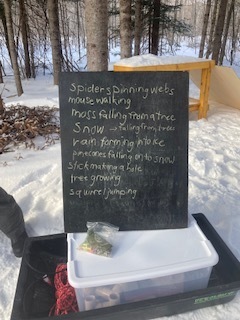 spiders pinning webs
mouse walking
moss falling from a tree
Snow → falling from trees
rain forming into ice
pinecones falling on to snow
stick making a hole
tree growing
squirrel jumping